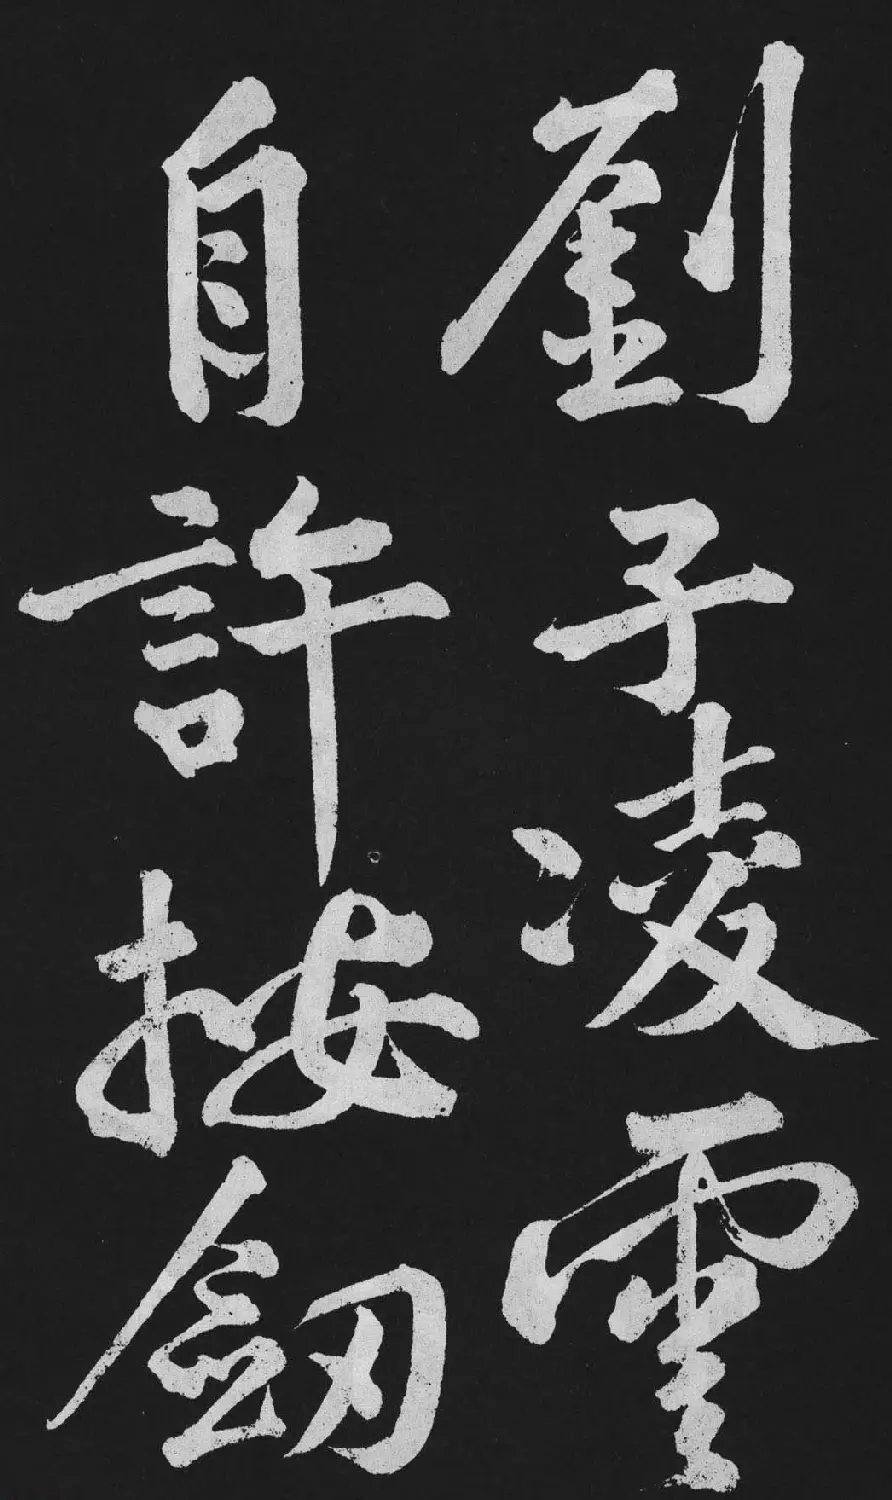 劉子凌雲
自許按劒